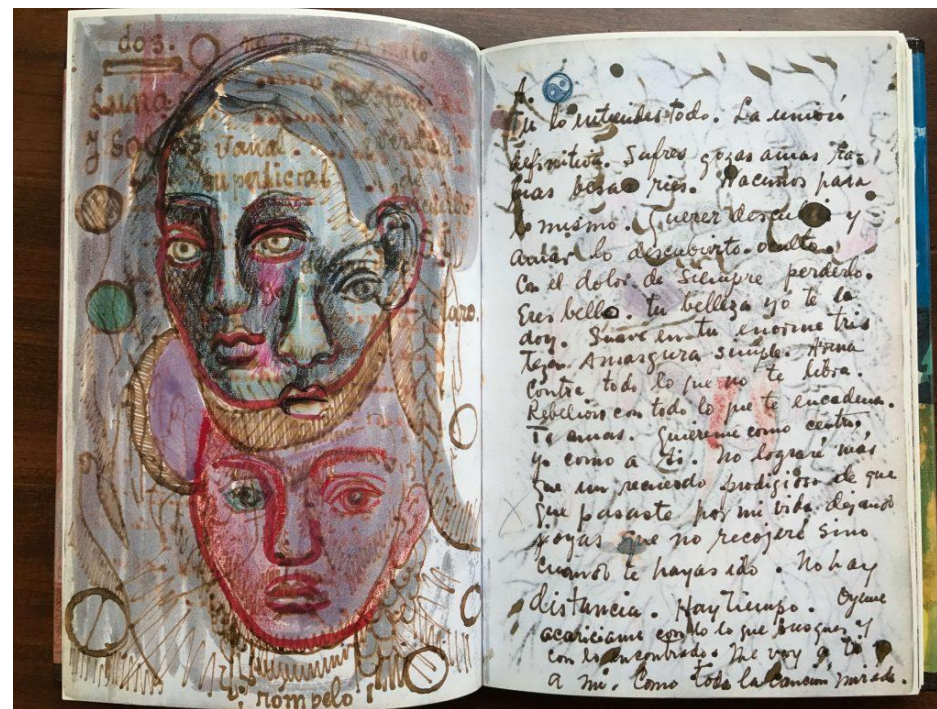 dos.
Lunas
y Soles vanal.
superficial
claro.
¡rompelo!
Tu lo entiendes todo. La unión
definitiva. Sufres gozas amas ra-
bias besas ries. Nacimos para
lo mismo. Querer descubrir y
amar lo descubierto. oculto.
Con el dolor de siempre perderlo.
Eres bella. tu belleza yo te la
doy. Suave en tu enorme tris
teza. Amargura simple. Arma
contra todo lo que no te libra.
Rebelion con todo lo que te encadena.
Te amas. Quiereme como centro.
yo como a ti. No lograré más
que un recuerdo prodigioso de que
que pasaste por mi vida dejando
joyas que no recojeré sino
cuando te hayas ido. No hay
distancia. Hay tiempo. Oyeme
acariciame con lo que busque y
con lo encontrado. Me voy a ti y
a mi. Como toda la canción mirada.